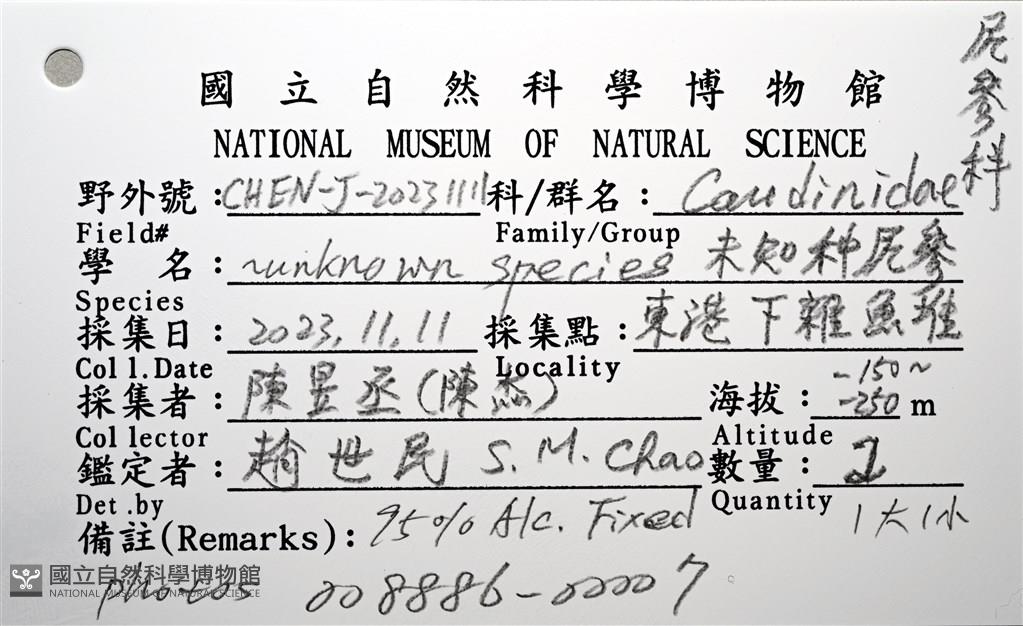 國立自然科學博物館
NATIONAL MUSEUM OF NATURAL SCIENCE
尻參科
野外號：CHEN-J-20231111 科/群名：Caudinidae
Field# Family/Group
學名：unknown species 未知种尻參
Species
採集日：2023.11.11 採集點：東港下雜魚堆
Coll.Date Locality
採集者：陳昱丞(陳杰) 海拔：-150~-250 m
Collector Altitude
鑑定者：趙世民 S. M. Chao 數量：2
Det.by Quantity 1大1小
備註(Remarks)：95% Alc. Fixed
photos 008886-00007
國立自然科學博物館
NATIONAL MUSEUM OF NATURAL SCIENCE